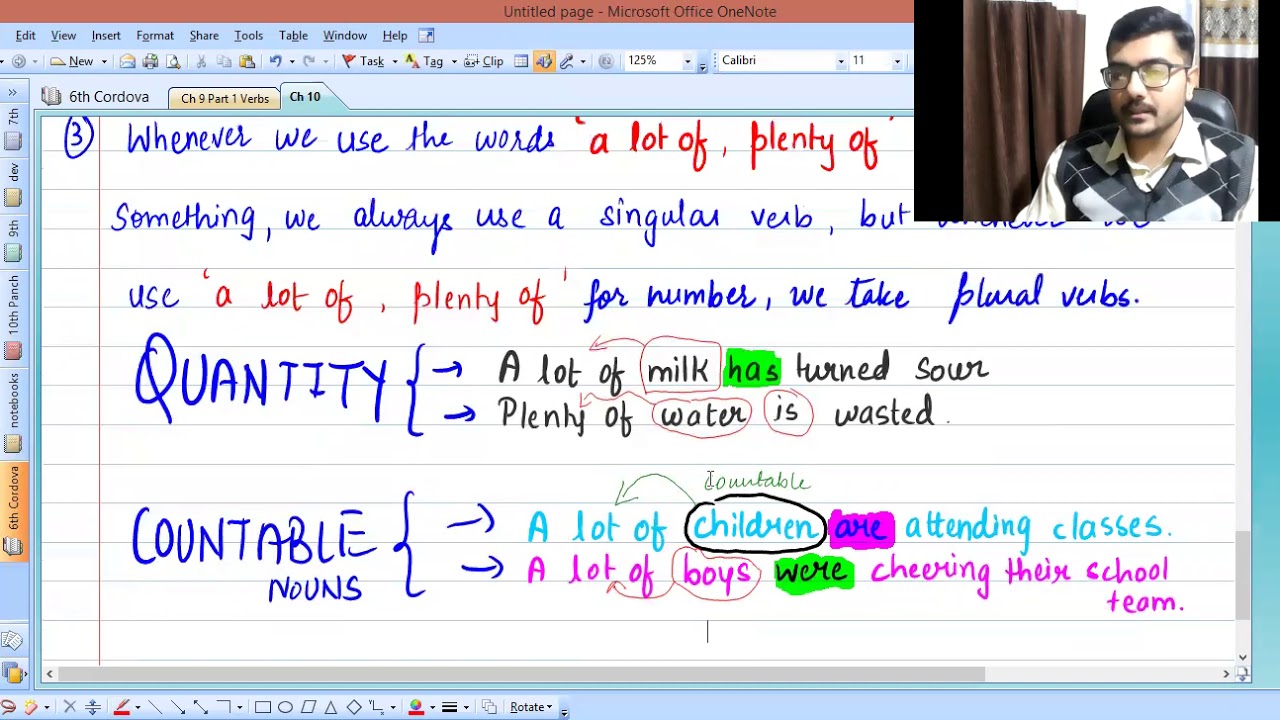 Untitled page - Microsoft Office OneNote
Edit View Insert Format Share Tools Table Window Help
New Task Tag Clip 125% Calibri 11
6th Cordova Ch 9 Part 1 Verbs Ch 10
7th
dev
9th
10th Panch
notebooks
6th Cordova
(3) Whenever we use the words 'a lot of, plenty of'
Something, we always use a singular verb, but
use 'a lot of, plenty of' for number, we take plural verbs.
QUANTITY { → A lot of milk has turned sour
→ Plenty of water is wasted.
Countable
COUNTABLE NOUNS { → A lot of children are attending classes.
→ A lot of boys were cheering their school
team.
Rotate